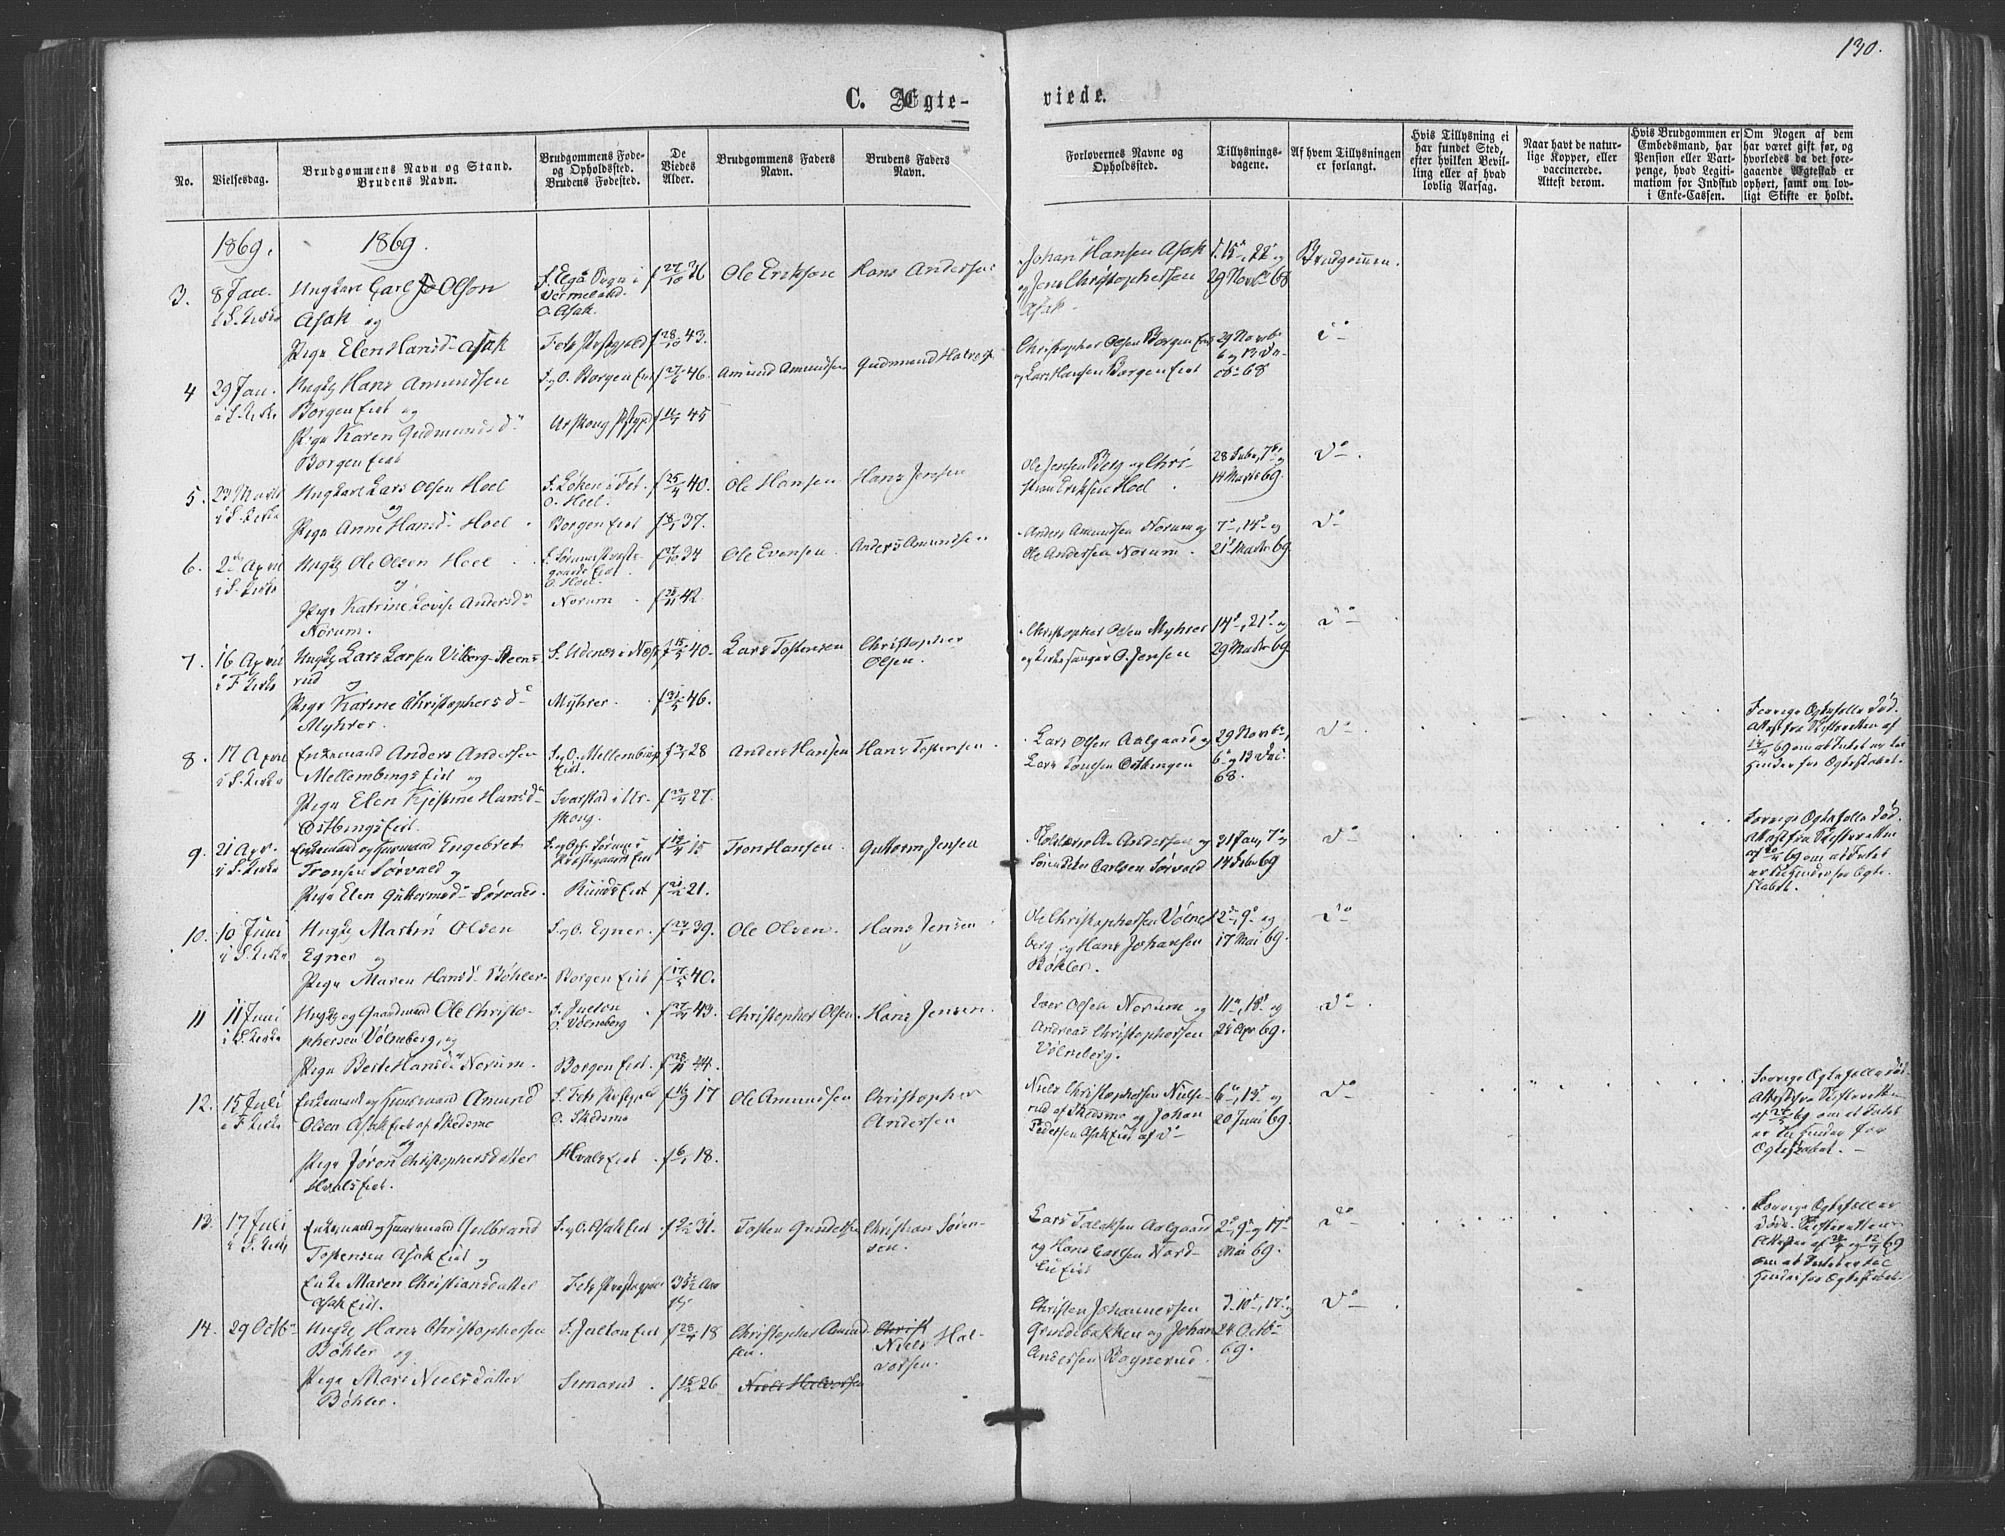 130.
C. Ægte-
viede.
No.
Vielsesdag.
Brudgommens Navn og Stand.
Brudens Navn.
Brudgommens Føde-
og Opholdssted.
Brudens Fødested.
De
Viedes
Alder.
Brudgommens Faders
Navn.
Brudens Faders
Navn.
Forlovernes Navne og
Opholdssted.
Tillysnings-
dagene.
Af hvem Tillysningen
er forlangt.
Hvis Tillysning ei
har fundet Sted,
efter hvilken Bevil-
ling eller af hvad
lovlig Aarsag.
Naar havt de natur-
lige Kopper, eller
vaccinerede.
Attest derom.
Hvis Brudgommen er
Embedsmand, har
Pension eller Vart-
penge, hvad Legiti-
mation for Indskud
i Enke-Cassen.
Om Nogen af dem
har været gift før, og
hvorledes da det fore-
gaaende Ægteskab er
ophørt, samt om lov-
ligt Skifte er holdt.
1869.
1869.
3.
8 Jan.
i S. Kirke
Ungkarl Carl Olson
Asak og
Pige Elen Hansd. Asak
Sogn i
Vermeland.
O. Asak.
Fets Præstegjeld
f 27/10 36
f 28/10 43.
Ole Erikson
Hans Andersen
Johan Hansen Asak
og Jens Christophersen
Asak.
15, 22 og
29 Novbr 68
Brudgommen.
4
29 Jan.
i S. Kirke
Ungk Hans Amundsen
Borgen Eiet og
Pige Karen Gudmundsd.
Borgen Eiet
F. og O. Borgen Eiet
Urskoug
f 27/6 46.
45
Amund Amundsen
Gudmund Halvors.
Christopher Olsen Borgen Eiet
og Lars Hansen Borgen Eiet
29 Novb.
6 og 13 De-
cbr 68
do
5.
29 Marts
i S. Kirke
Ungkarl Lars Olsen Hoel
og
Pige Anne Hansd. Hoel
F. Løken i Fet.
O. Hoel.
Borgen Eiet
f 25/4 40.
37.
Ole Hansen
Hans Jensen
Ole Jensen Berg og Chri-
stian Eriksen Hoel
28 Febr., 7 og
14 Marts 69.
Do.
6.
2 April
i S. Kirke
Ungk Ole Olsen Hoel
og
Pige Katrine Lovise Andersd.
Norum.
O. Hoel.
Norum
34
42.
Ole Evensen.
Anders Amundsen
Anders Amundsen Norum og
Ole Andersen Norum.
7, 14 og
21 Marts 69.
Do
7.
16 April
i F. Kirke
Ungk Lars Larsen Viberg-Steens-
rud
og
Pige Karine Christophersd.
Myhrer.
F. Udenæs i Næs
Myhrer.
f 15/5 40.
f 31/5 46.
Lars Tostensen
Christopher
Olsen.
Christopher Olsen Myhrer
og Kirkesanger O. Jensen
14, 21 og
29 Marts 69.
Do
8.
17 April
i S. Kirke
Enkemand Anders Andersen
Mellembings Eiet og
Pige Elen Kjestine Hansd.
Østbings Eiet.
F. og O. Mellembings
Eiet.
Svarstad i Ur-
skoug.
28
27.
Anders Hansen
Hans Tostensen
Lars Olsen Aalgaard og
Lars Østbingen
29 Novbr,
6 og 13 Dec.
68.
Do
Forrige Ægtefælle død.
Attest fra Skifteretten af
14/4 69 om at Intet er til
Hinder for Ægteskabet.
9.
21 Apr.
i S. Kirke
Enkemand og Huusmand Engebret
Tronsen Sørvald og
Pige Elen Guttormsd. Sørvald.
Prestegaards Eiet
Runds Eiet
15
21.
Tron Hansen.
Guttorm Jensen
A. Andersen og
Carlsen Sørvald
31 Jan, 7 og
14 Febr 69
Do
Forrige Ægtefælle død.
Attest fra Skifteretten
af 20/4 69 om at Intet
er til Hinder for Ægte-
skabet.
10.
10 Juni
i S. Kirke
Ungk Martin Olsen
Egner og
Pige Maren Hansd. Bøhler
F. og O. Egner.
Borgen Eiet
39.
40.
Ole Olsen.
Hans Jensen
Ole Christophersen Vølne-
berg og Hans Johansen
Bøhler.
2, 9 og
17 Mai 69.
Do
11
11 Juni
i S. Kirke
Ungk og Gaardmand Ole Christo-
phersen Vølneberg, og
Pige Berte Hansd. Norum.
F. Julton
O. Vølneberg
Borgen Eiet.
43.
44.
Christopher Olsen.
Hans Jensen.
Iver Olsen Norum og
Andreas Christophersen
Vølneberg.
11, 18 og
25 Apr 69.
Do
12.
15 Juli
i F. Kirke
Enkemand og Huusmand Amund
Olsen Asak Eiet af Skedsmo
og
Pige Jøron Christophersdatter
Hvals Eiet.
F. Fets Præstegjeld
O. Skedsmo
Hvals Eiet.
17
f 6/1 18.
Ole Amundsen
Christopher
Andersen
Niels Christophersen Niels-
rud af Skedsmo og Johan
Pedersen Asak Eiet af do
6, 13 og
20 Juni 69.
Do
Forrige Ægtefælle død.
Attest fra Skifteretten
69 om at Intet
er til Hinder for
Ægteskabet.
13.
17 Juli
i S. Kirke
Enkemand og Huusmand Gulbrand
Tostensen Asak Eiet og
Enke Maren Christiansdatter
Asak Eiet.
F. og O. Asak Eiet
Fets Præstegjeld
31.
Tosten Gundersen
Christian Søren-
sen.
Lars Aalgaard
og Hans Carlsen Nord-
li Eiet
2, 9 og 17
Mai 69.
Do
Forrige Ægtefæller
døde. Skifterettens
69
om at Intet er til
Hinder for Ægteskabet.
14.
29 Octb.
Ungk Hans Christophersen
Bøhler og
Pige Mari Nielsdatter
Bøhler.
F. Julton Eiet
Simarud
f 28/4 18
26
Christopher Amund-
sen.
Niels Halvorsen
Christ
Niels Hal-
vorsen.
Christen Johannessen
Grundebakken og Johan
Andersen Bognerud.
10, 17 og
24 Octb.
69.
Do